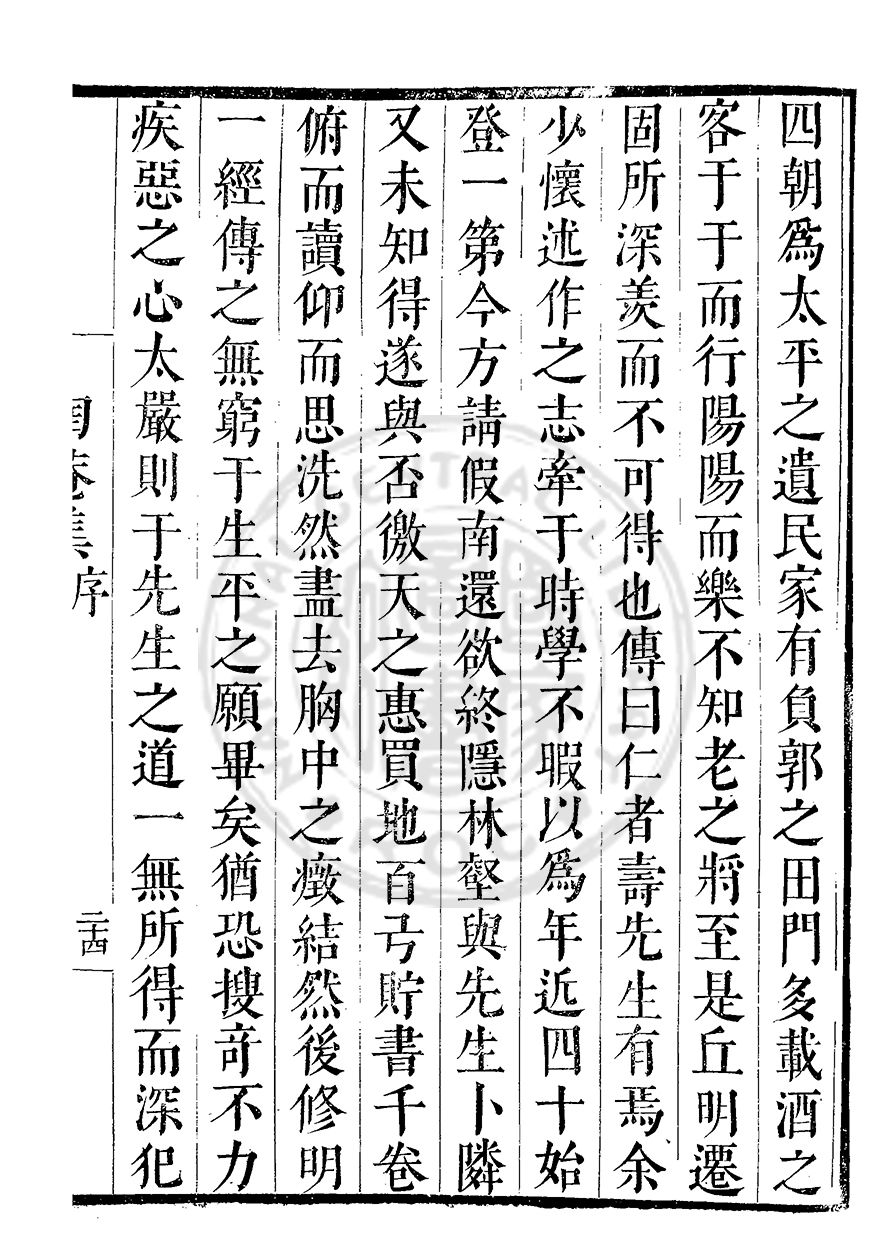 四朝爲太平之遺民家有負郭之田門多載酒之
客于于而行陽陽而樂不知老之將至是丘明遷
固所深羨而不可得也傳曰仁者壽先生有焉余
少懷述作之志牽于時學不暇以爲年近四十始
登一第今方請假南還欲終隱林壑與先生卜隣
又未知得遂與否徼天之惠買地百弓貯書千卷
俯而讀仰而思洗然盡去胸中之癥結然後修明
一經傳之無窮于生平之願畢矣猶恐搜奇不力
疾惡之心太嚴則于先生之道一無所得而深犯
菴集序
二十四